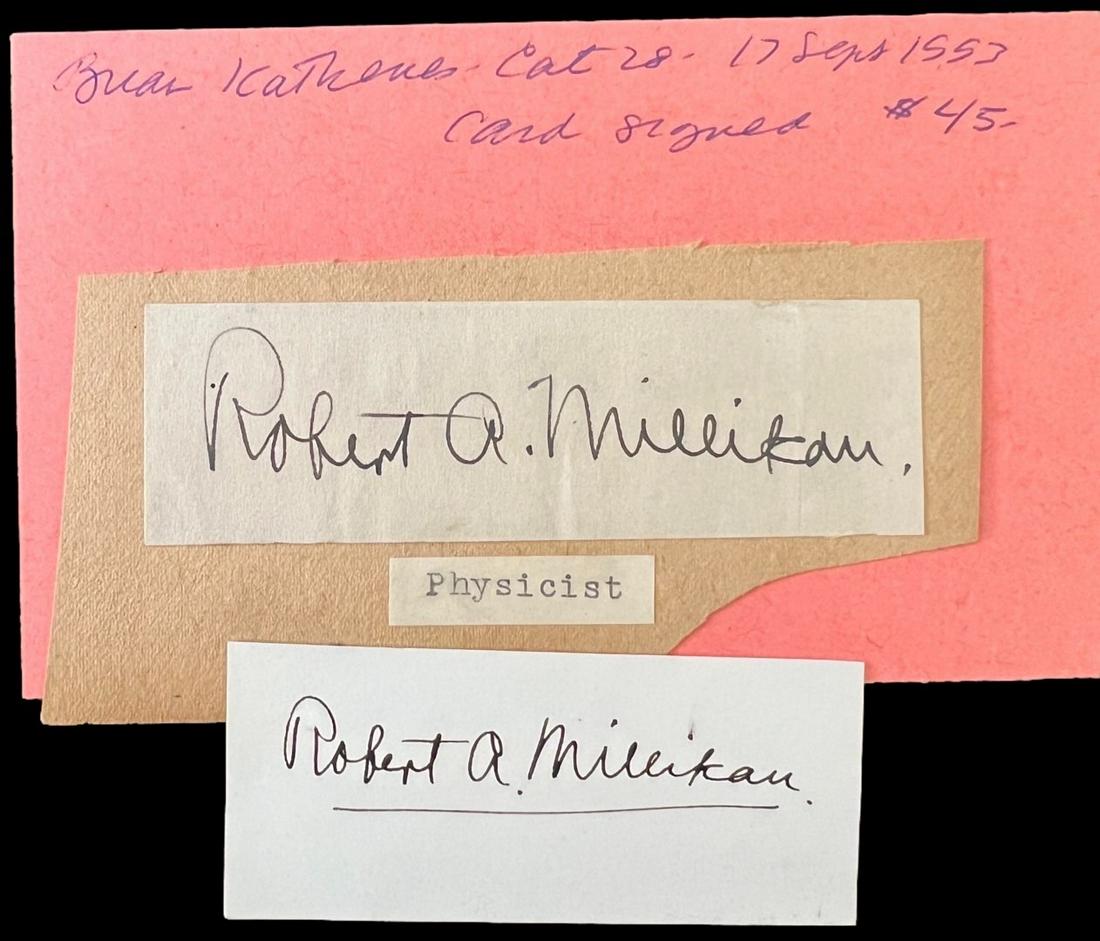 Brian Kathenes - Cat 28 - 17 Sept 1993
Card signed $45-
Robert A. Millikan.
Physicist
Robert A. Millikan.